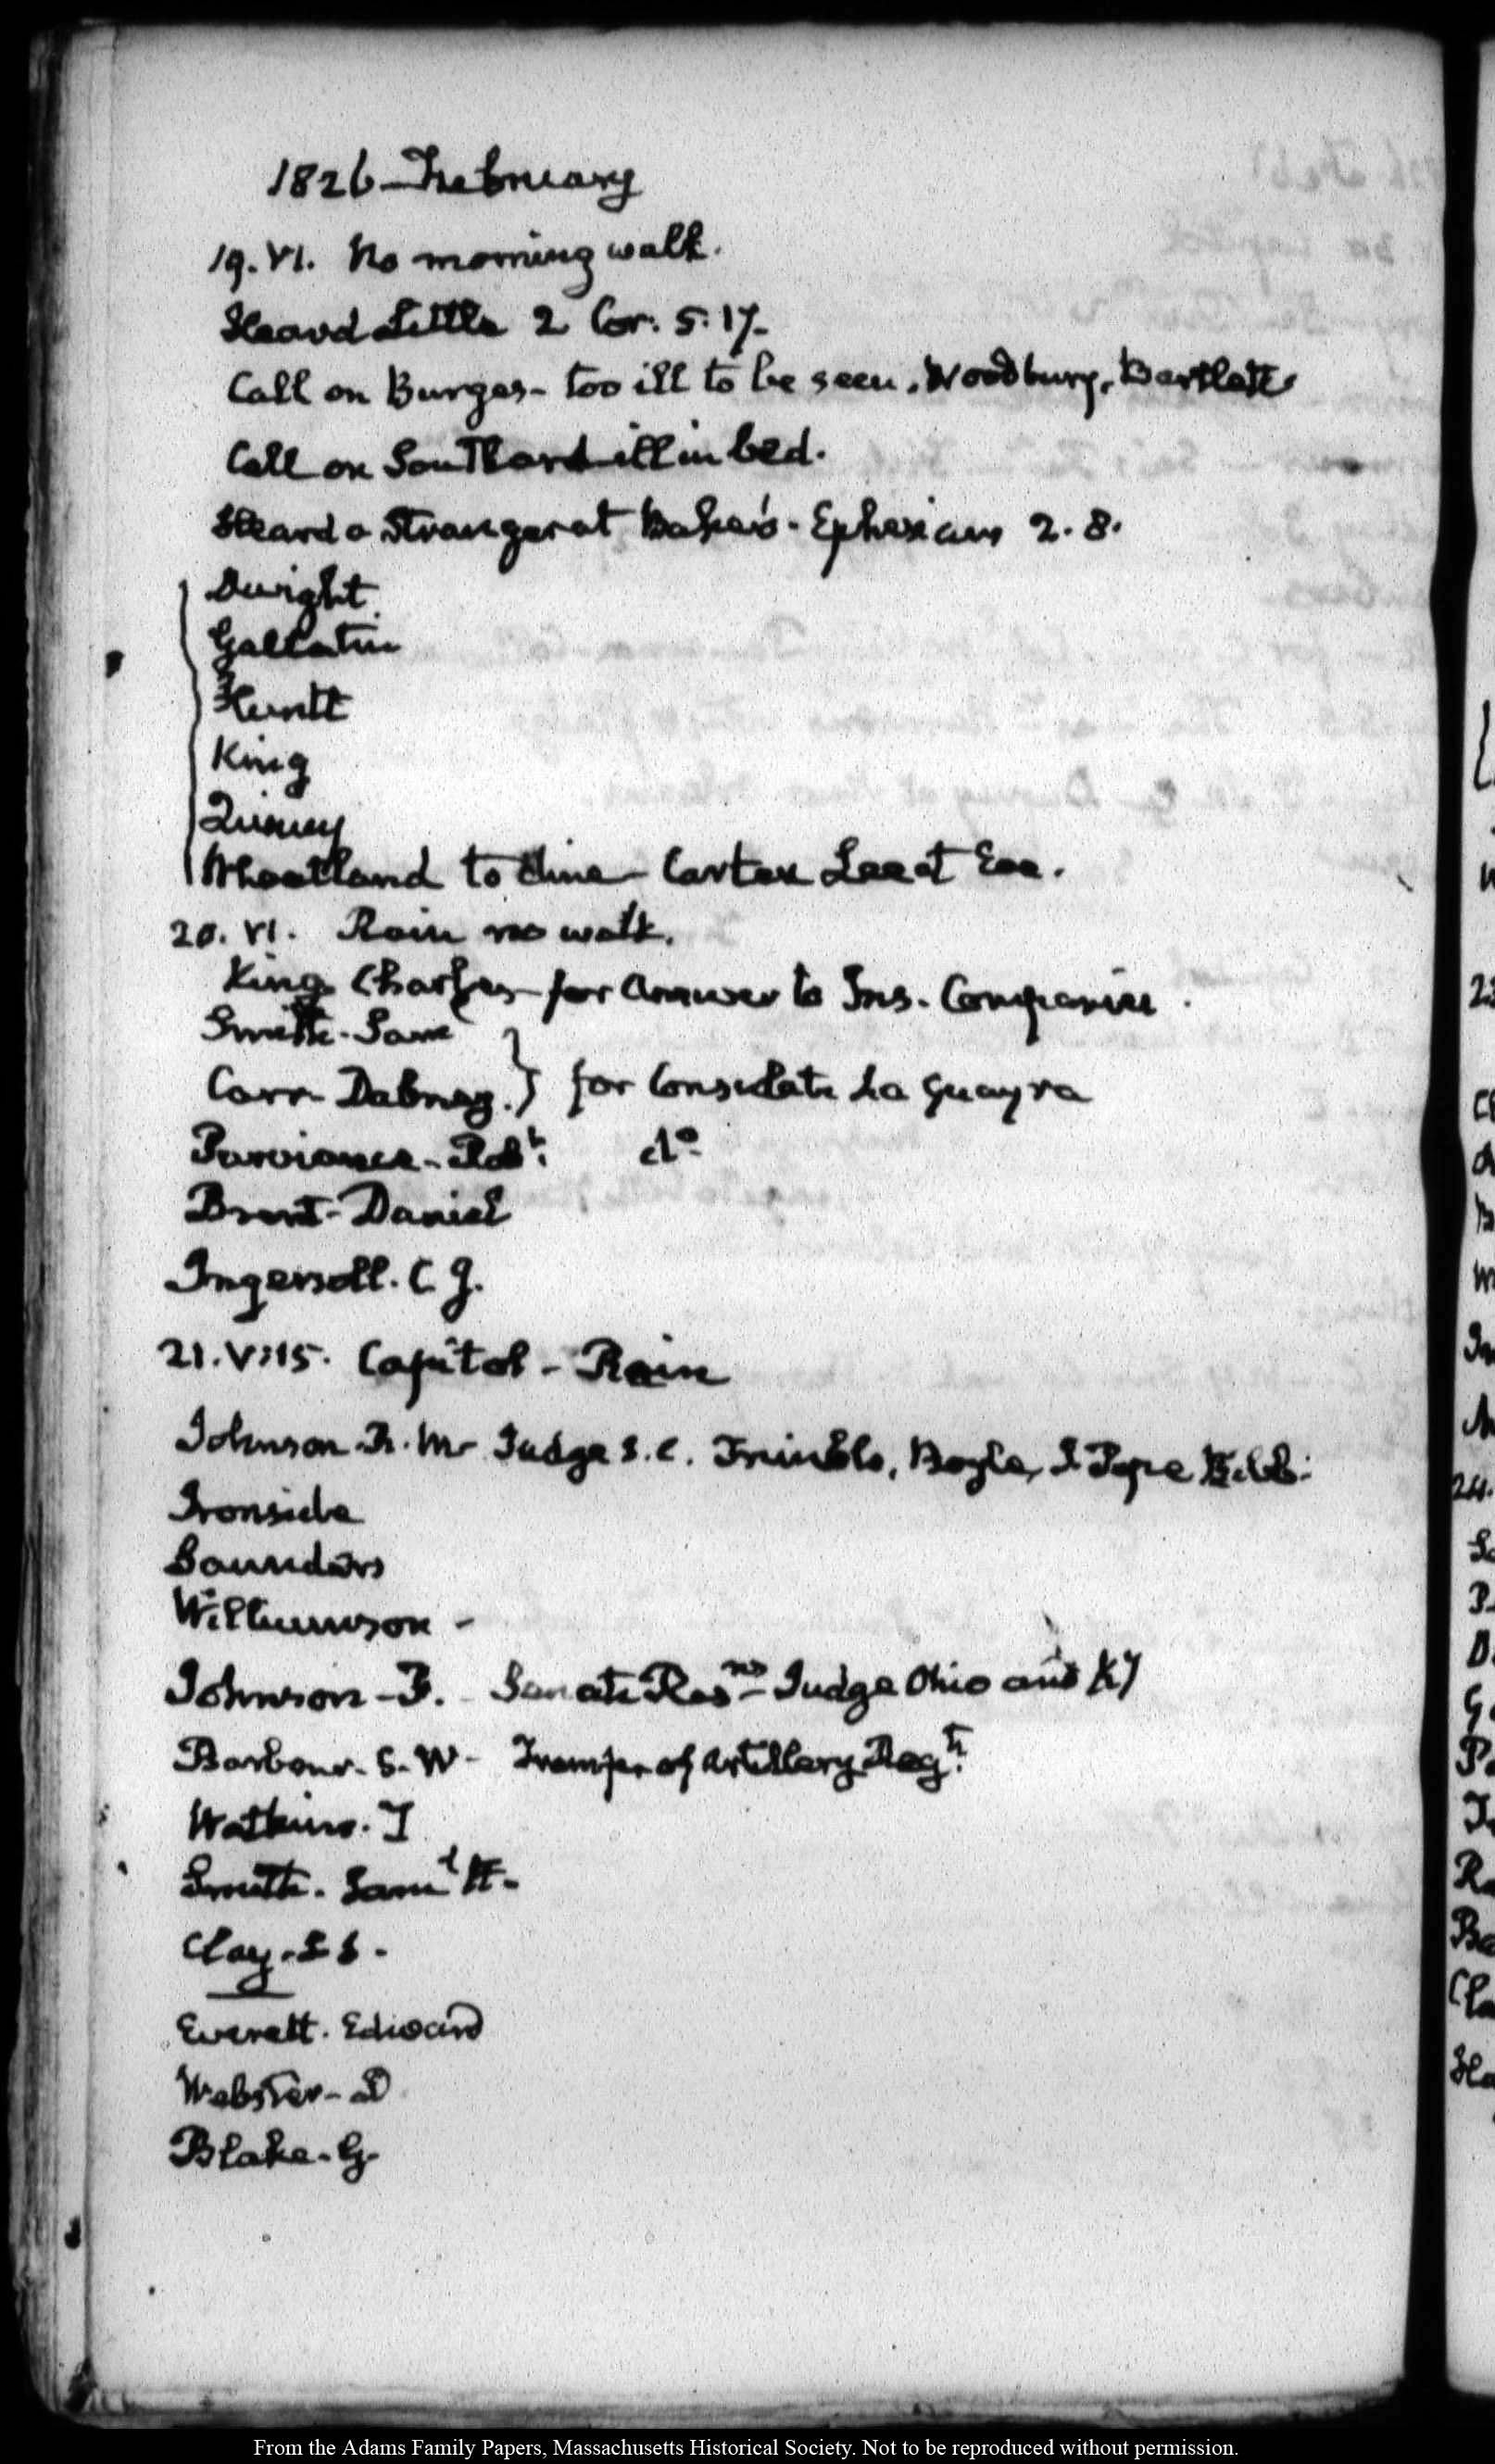 1826 - February
19. VI. No morning walk.
Heard Little 2 Cor. 5. 17.
Call on Burges - too ill to be seen. Woodbury. Bartlett
Call on Southard ill in bed.
Heard a Stranger at Baker's - Ephesians 2. 8.
Dwight
Gallatin
Huntt
King
Quincy
Wheatland to dine - Lee at Eve.
20. VI. Rain no walk.
King Charles for Answer to Ins. Companies
Smith - Sam
Carr Dabney. } for Consulate La Guayra
Purviance - Robt. do
Brent - Daniel
Ingersoll. C J.
21. V:15. Capitol - Rain
Johnson R. M - Judge S. C. Trimble, Boyle, Pope Bibb.
Ironside
Saunders
Williamson -
Johnson - F. - Senate Resns - Judge Ohio and Ky
Barbour. S. W - Transfer of Artillery Regt.
Watkins. T
Smith. Saml H -
Clay - S S.
Everett. Edward
Webster - D
Blake - G.
From the Adams Family Papers, Massachusetts Historical Society. Not to be reproduced without permission.